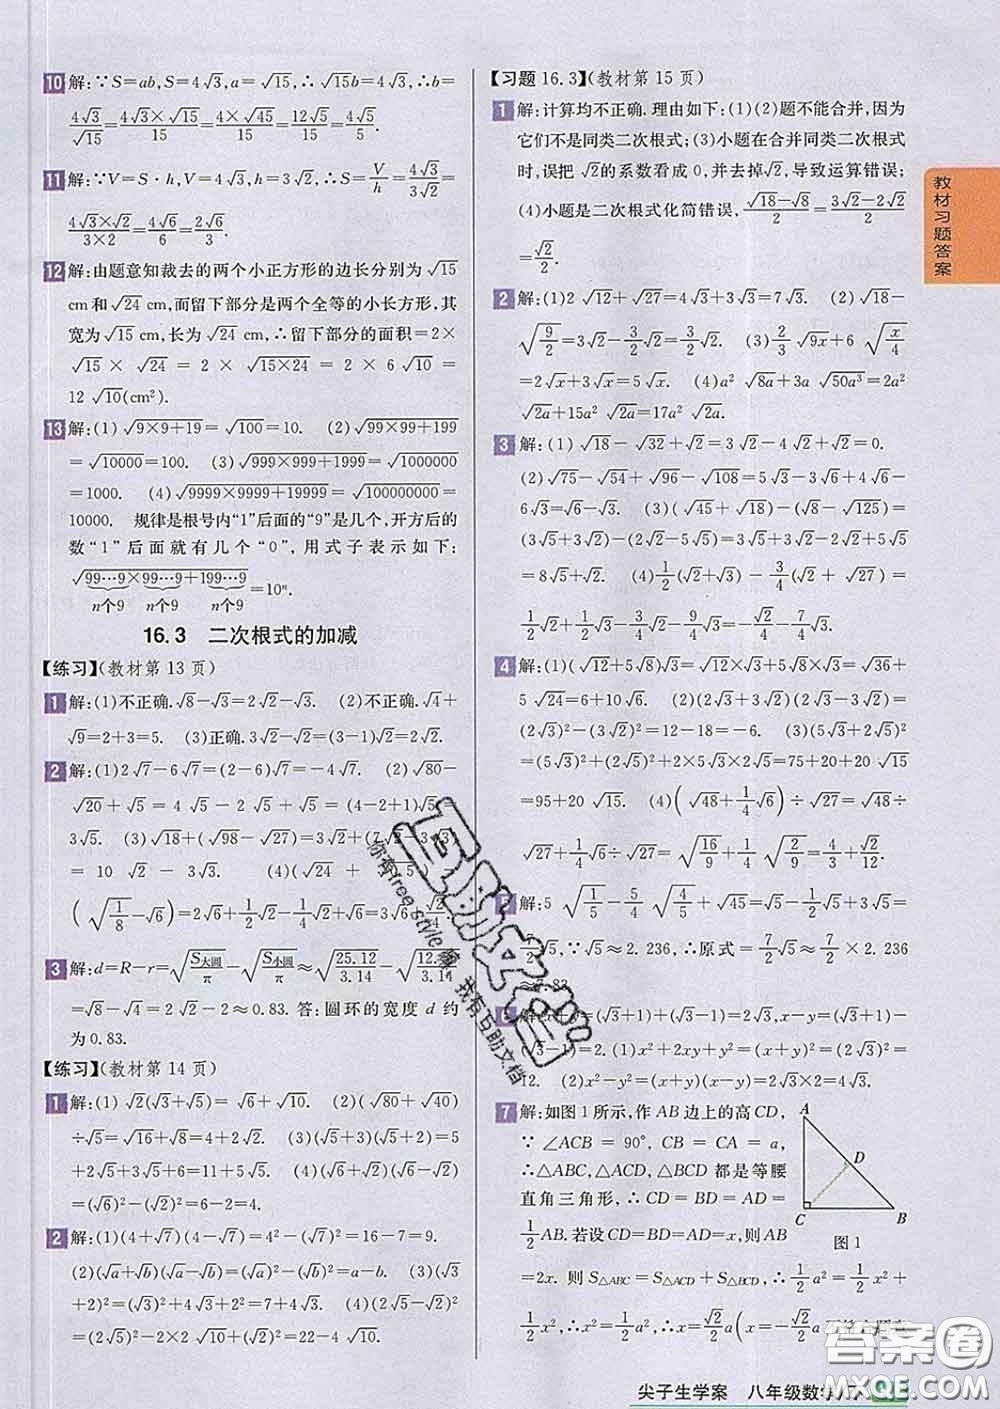 10 解:∵S=ab,S=4√3,a=√15,∴√15b=4√3,∴b=
4√3/√15=4√3×√15/15=4×√45/15=12√5/15=4√5/5.
11 解:∵V=S·h,V=4√3,h=3√2,∴S=V/h=4√3/3√2=
4√3×√2/3×2=4√6/6=2√6/3.
12 解:由题意知裁去的两个小正方形的边长分别为√15
cm和√24 cm,而留下部分是两个全等的小长方形,其
宽为√15 cm,长为√24 cm,∴留下部分的面积=2×
√15 × √24 = 2 × √15×24 = 2 × 6√10 =
12√10(cm²).
13 解:(1)√9×9+19=√100=10. (2)√99×99+199
=√10000=100. (3)√999×999+1999=√1000000
=1000. (4)√9999×9999+19999=√100000000=
10000. 规律是根号内“1”后面的“9”是几个,开方后的
数“1”后面就有几个“0”,用式子表示如下:
√99…9×99…9+199…9=10ⁿ.
n个9 n个9 n个9
16.3 二次根式的加减
【练习】(教材第13页)
1 解:(1)不正确.√8-√3=2√2-√3. (2)不正确.√4+
√9=2+3=5. (3)正确.3√2-√2=(3-1)√2=2√2.
2 解:(1)2√7-6√7=(2-6)√7=-4√7. (2)√80-
√20+√5=4√5-2√5+√5=(4-2+1)√5=
3√5. (3)√18+(√98-√27)=3√2+(7√2-3√3)
= 10√2 - 3√3. (4)(√24 +
(√1/8-√6)=2√6+1/2√2-1/4√2+√6=3√6
3 解:d=R-r=√S大圆/π-√S小圆/π≈√25.12/3.14-√12./3.14
=√8-√4=2√2-2≈0.83. 答:圆环的宽度 d 约
为0.83.
【练习】(教材第14页)
1 解:(1)√2(√3+√5)=√6+√10. (2)(√80+√40)
÷√5=√16+√8=4+2√2. (3)(√5+3)(√5+2)=5
+2√5+3√5+6=11+5√5. (4)(√6+√2)(√6-√2)
=(√6)²-(√2)²=6-2=4.
2 解:(1)(4+√7)(4-√7)=4²-(√7)²=16-7=9.
(2)(√a+√b)(√a-√b)=(√a)²-(√b)²=a-b. (3)(√3
+2)²=(√3)²+4√3+2²=7+4√3. (4)(2√5-√2)²
=(2√5)²-2×2√10+(√2)²=22-4√10.
【习题16.3】(教材第15页)
1 解:计算均不正确.理由如下:(1)(2)题不能合并,因为
它们不是同类二次根式;(3)小题在合并同类二次根式
时,误把√2的系数看成0,并去掉√2,导致运算错误;
(4)小题是二次根式化简错误,√18-√8/2=3√2-2√2/2
=√2/2.
2 解:(1)2√12+√27=4√3+3√3=7√3. (2)√18-
√9/2=3√2-3/2√2=3/2√2. (3)2/3√9x+6√x/4
=2√x+3√x=5√x. (4)a²√8a+3a√50a³=2a²
√2a+15a²√2a=17a²√2a.
3 解:(1)√18-√32+√2=3√2-4√2+√2=0.
(2)√75-√54+√96-√108=5√3-3√6+4√6-
6√3=√6-√3. (3)(√45+√18)-(√8-√125)=
(3√5+3√2)-(2√2-5√5)=3√5+3√2-2√2+5√5
=8√5+√2. (4)1/2(√2+√3)-3/4(√2+√27)=
1/2√2+1/2√3-3/4√2-9/4√3=-√2/4-7/4√3.
4 解:(1)(√12+5√8)√3=√12×√3+5√8×√3=√36+
5√24=6+10√6. (2)(2√3+3√2)(2√3-3√2)=
(2√3)²-(3√2)²=12-18=-6. (3)(5√3+2√5)²
=(5√3)²+(2√5)²+2×5×2√3×√5=75+20+20√15
=95+20√15. (4)(√48+1/4√6)÷√27=√48÷
√27+1/4√6÷√27=√16/9+1/4√2/9=4/3+√2/12.
5 解:5√1/5-5/4√4/5+√45=√5-√5/2+3√5=
7/2√5,∵√5≈2.236,∴原式=7/2√5≈7/2×2.236
≈7.83.
6 解:x+y=(√3+1)+(√3-1)=2√3,x-y=(√3+1)-
(√3-1)=2. (1)x²+2xy+y²=(x+y)²=(2√3)²=
12. (2)x²-y²=(x+y)(x-y)=2√3×2=4√3.
7 解:如图1所示,作AB边上的高CD,
∵∠ACB=90°,CB=CA=a,
∴△ABC,△ACD,△BCD都是等腰
直角三角形,∴CD=BD=AD=
1/2AB.若设CD=BD=AD=x,则AB
=2x. 则S△ABC=S△ACD+S△BCD,∴1/2a²=1/2x²+
1/2x²,∴x²=1/2a²,∴x=√2/2a(x=-√2/2a
A
D
C
B
图1
教材习题答案
尖子生学案 八年级数学
互助文档
你有free style嘛
我有互助文档
答案圈
MXQE.COM